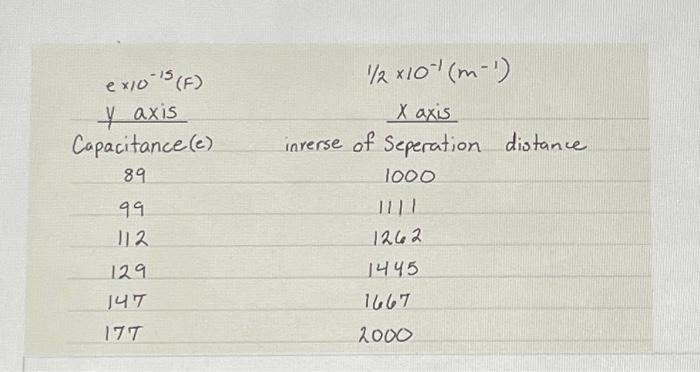 e x10⁻¹⁵(F) 1/2 x10⁻¹(m⁻¹)
y axis X axis
Capacitance(e) inverse of Seperation distance
89 1000
99 1111
112 1262
129 1445
147 1667
177 2000